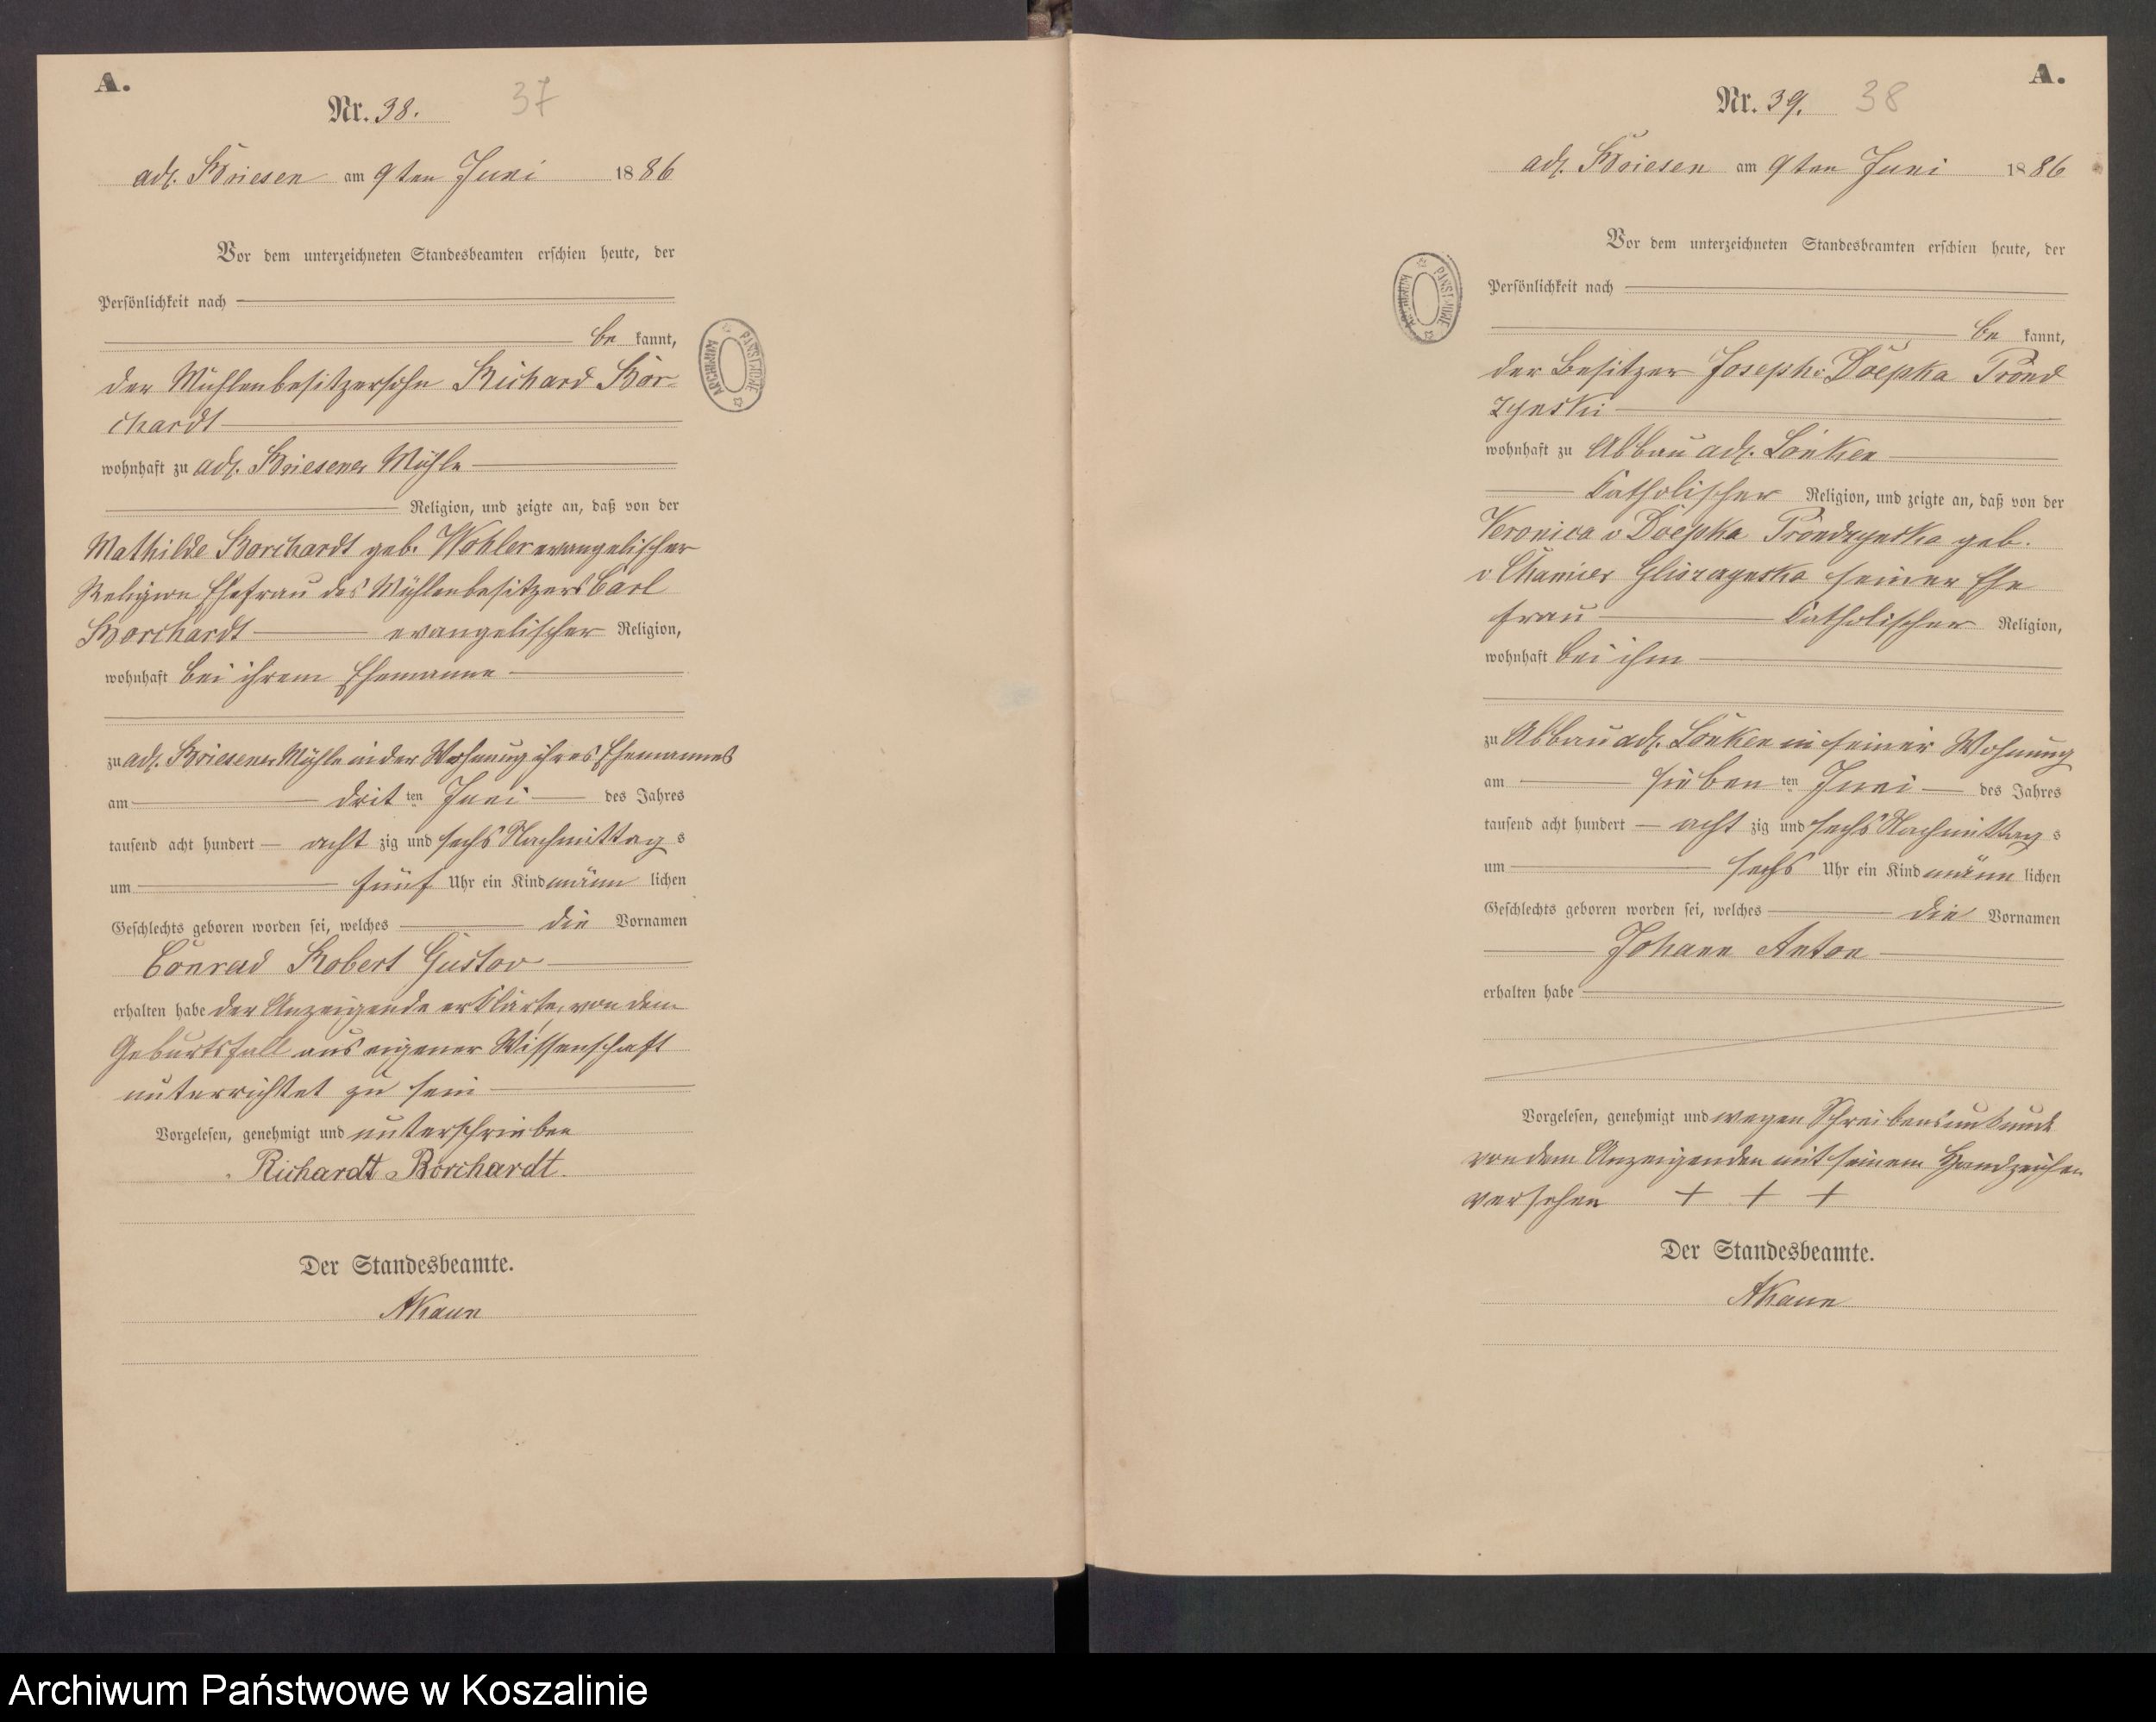 A.
Nr. 38. 37
adl. Briesen am 9ten Juni 1886
Vor dem unterzeichneten Standesbeamten erschien heute, der
Persönlichkeit nach
be kannt,
der Mühlenbesitzersohn Richard Bor-
chardt
wohnhaft zu adl. Briesener Mühle
Religion, und zeigte an, daß von der
Mathilde Borchardt geb. Wohler evangelischer
Religion Ehefrau des Mühlenbesitzers Carl
Borchardt evangelischer Religion,
wohnhaft bei ihrem Ehemanne
zu adl. Briesener Mühle in der Wohnung ihres Ehemannes
am drit ten Juni des Jahres
tausend acht hundert acht zig und sechs Nachmittag s
um fünf Uhr ein Kind männ lichen
Geschlechts geboren worden sei, welches die Vornamen
Conrad Robert Gustav
erhalten habe der Anzeigende erklärte, von dem
Geburtsfall aus eigener Wissenschaft
unterrichtet zu sein
Vorgelesen, genehmigt und unterschrieben
Richardt Borchardt.
Der Standesbeamte.
AKaun
ARCHIWUM PAŃSTWOWE
A.
Nr. 39. 38
adl. Briesen am 9ten Juni 1886
Vor dem unterzeichneten Standesbeamten erschien heute, der
Persönlichkeit nach
be kannt,
der Besitzer Joseph v Döepka Prond
zynski
wohnhaft zu Abbau adl. Lonken
Katholischer Religion, und zeigte an, daß von der
Veronica v Doepka Prondzynska geb.
v Chamier Gliszczynska seiner Ehe
frau Katholischer Religion,
wohnhaft bei ihm
zu Abbau adl. Lonken in seiner Wohnung
am sieben ten Juni des Jahres
tausend acht hundert acht zig und sechs Nachmittag s
um sechs Uhr ein Kind männ lichen
Geschlechts geboren worden sei, welches die Vornamen
Johann Anton
erhalten habe
Vorgelesen, genehmigt und wegen Schreibensunkunde
von dem Anzeigenden mit seinem Handzeichen
versehen + + +
Der Standesbeamte.
AKaun
ARCHIWUM PAŃSTWOWE
Archiwum Państwowe w Koszalinie